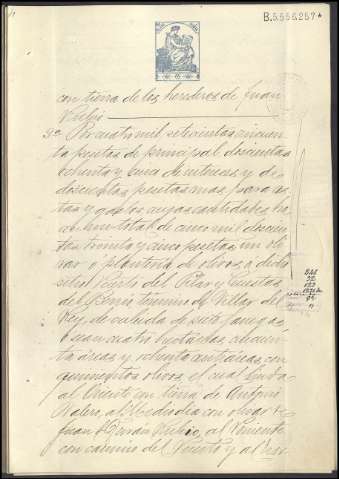 B.5.556.257*
con tierra de los herederos de Juan
Rubio
5ª Por cuatro mil setecientas cincuen-
ta pesetas de principal, doscientas
ochenta y cinco de intereses, y de
doscientas pesetas mas, para cos-
tas y gastos cuyas cantidades, ha-
cen un total de cinco mil doscien-
tas treinta y cinco pesetas, un oli-
var ó plantonar de olivos, a dicho
sitio Puerto del Pilar y Cuestas
del termino de Villar del
Rey, de cabida de siete fanegas,
ó sean cuatro hectáreas, cincuen-
ta áreas y ochenta centiáreas, con
quinientos olivos, el cual linda
al Oriente con tierra de Antonio
Rodero, al Mediodia con olivar de
Juan Rubio, al Poniente
con camino del Puerto y al